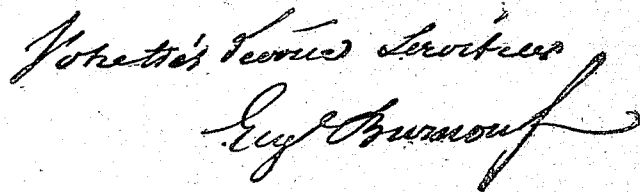 Votre très dévoué serviteur
Eug. Burnouf